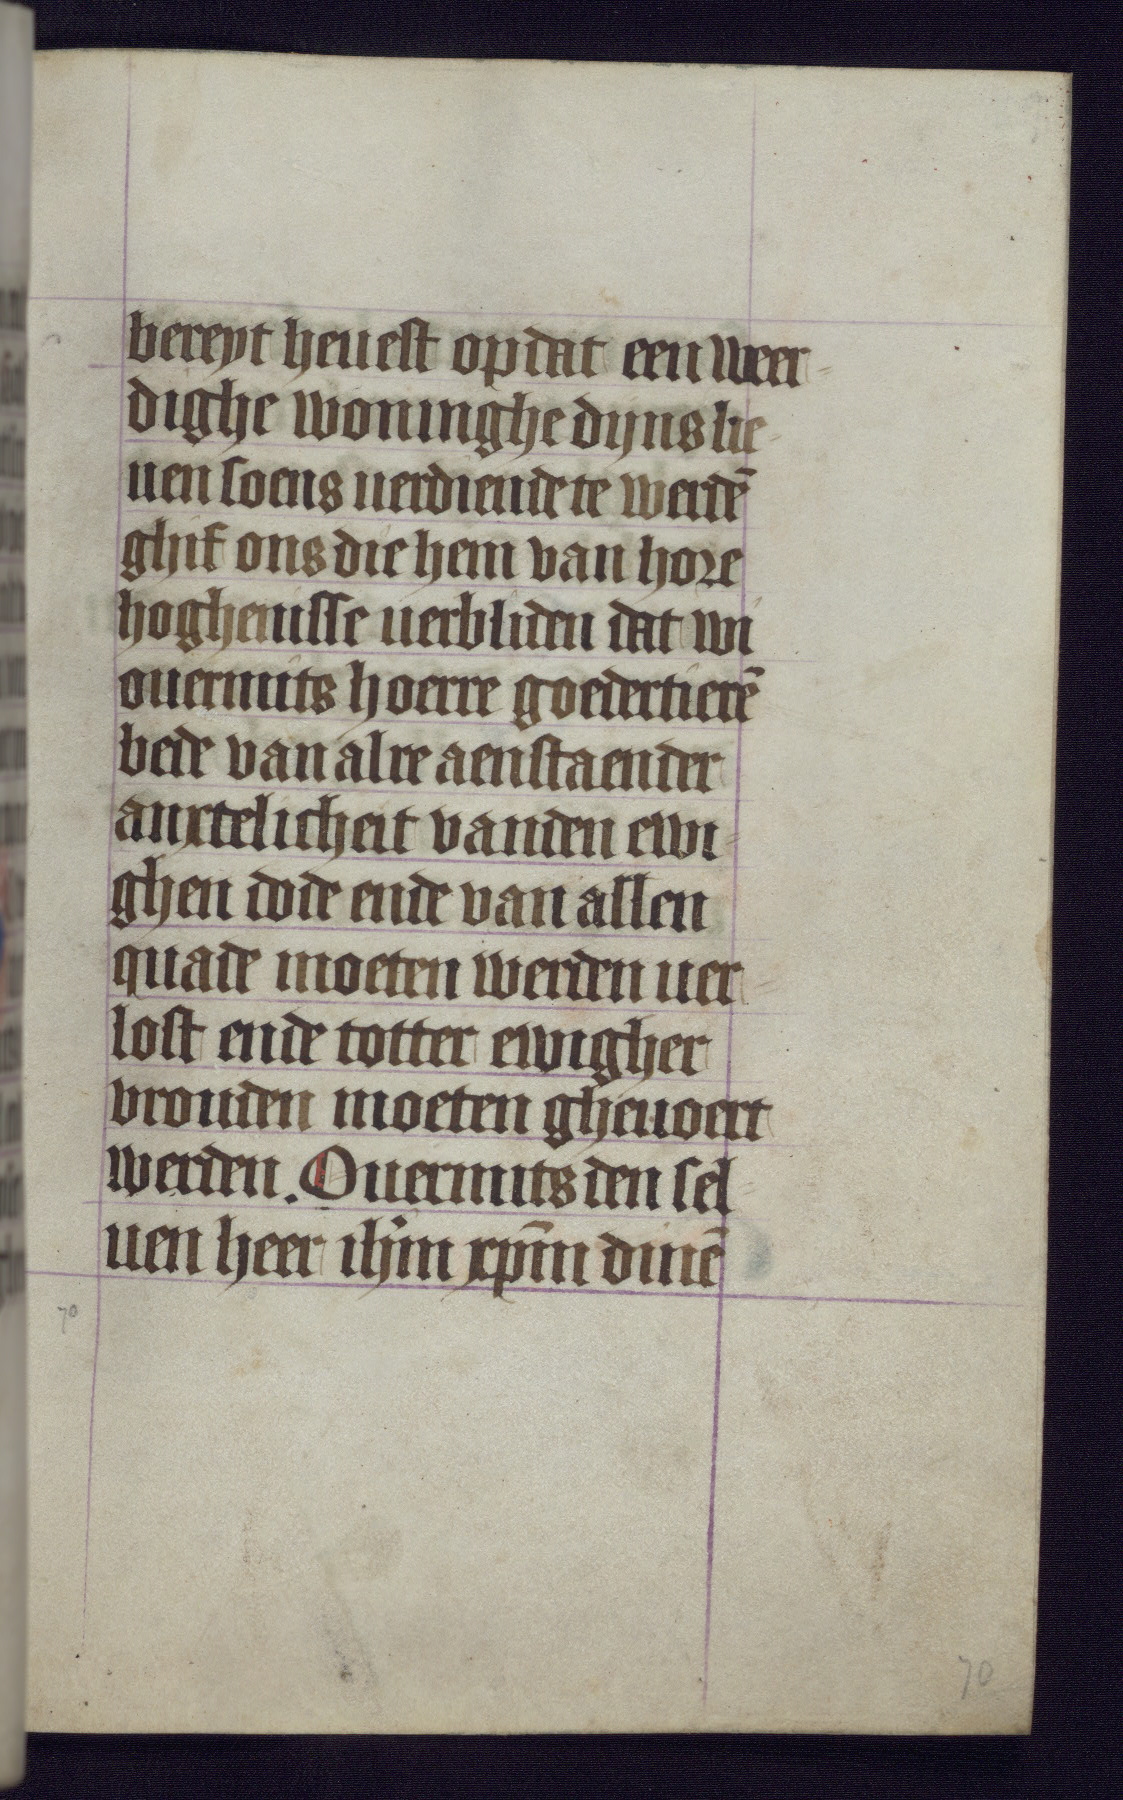 bereyt heuest op dat een weer-
dighe woninghe dijns lie-
uen soens uerdiende te werdē
ghif ons die hem van hore
hoghenisse uerbliden dat wi
ouermits hoerre goedertierē
bede van alre aenstaender
anxtelicheit vanden ewi-
ghen dode ende van allen
quade moeten werden uer-
lost ende totter ewigher
vrouden moeten gheuoert
werden. Ouermits den sel-
uen heer ihm̄ xpm̄ dinē
70
70